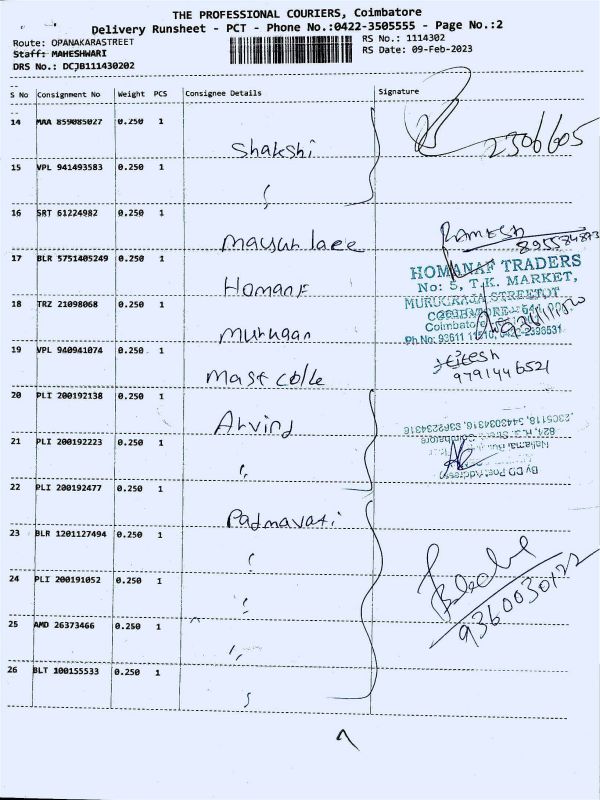 THE PROFESSIONAL COURIERS, Coimbatore
Delivery Runsheet - PCT - Phone No.:0422-3505555 - Page No.:2
Route: OPANAKARASTREET
RS No.: 1114302
Staff: MAHESHWARI
RS Date: 09-Feb-2023
DRS No.: DCJB111430202
S No Consignment No Weight PCS Consignee Details Signature
14 MAA 859085027 0.250 1
Shakshi
2306605
15 VPL 941493583 0.250 1
"
16 SRT 61224982 0.250 1
Mayur lace
RAMESH
17 BLR 5751405249 0.250 1
Homanf
HOMANAF TRADERS
No: 5, T.K. MARKET,
18 TRZ 21098068 0.250 1
Murugan
19 VPL 940941074 0.250 1
9791446521
20 PLI 200192138 0.250 1
Arvind
21 PLI 200192223 0.250 1
"
22 PLI 200192477 0.250 1
Padmavati
23 BLR 1201127494 0.250 1
"
24 PLI 200191052 0.250 1
"
25 AMD 26373466 0.250 1
"
26 BLT 100155533 0.250 1
"